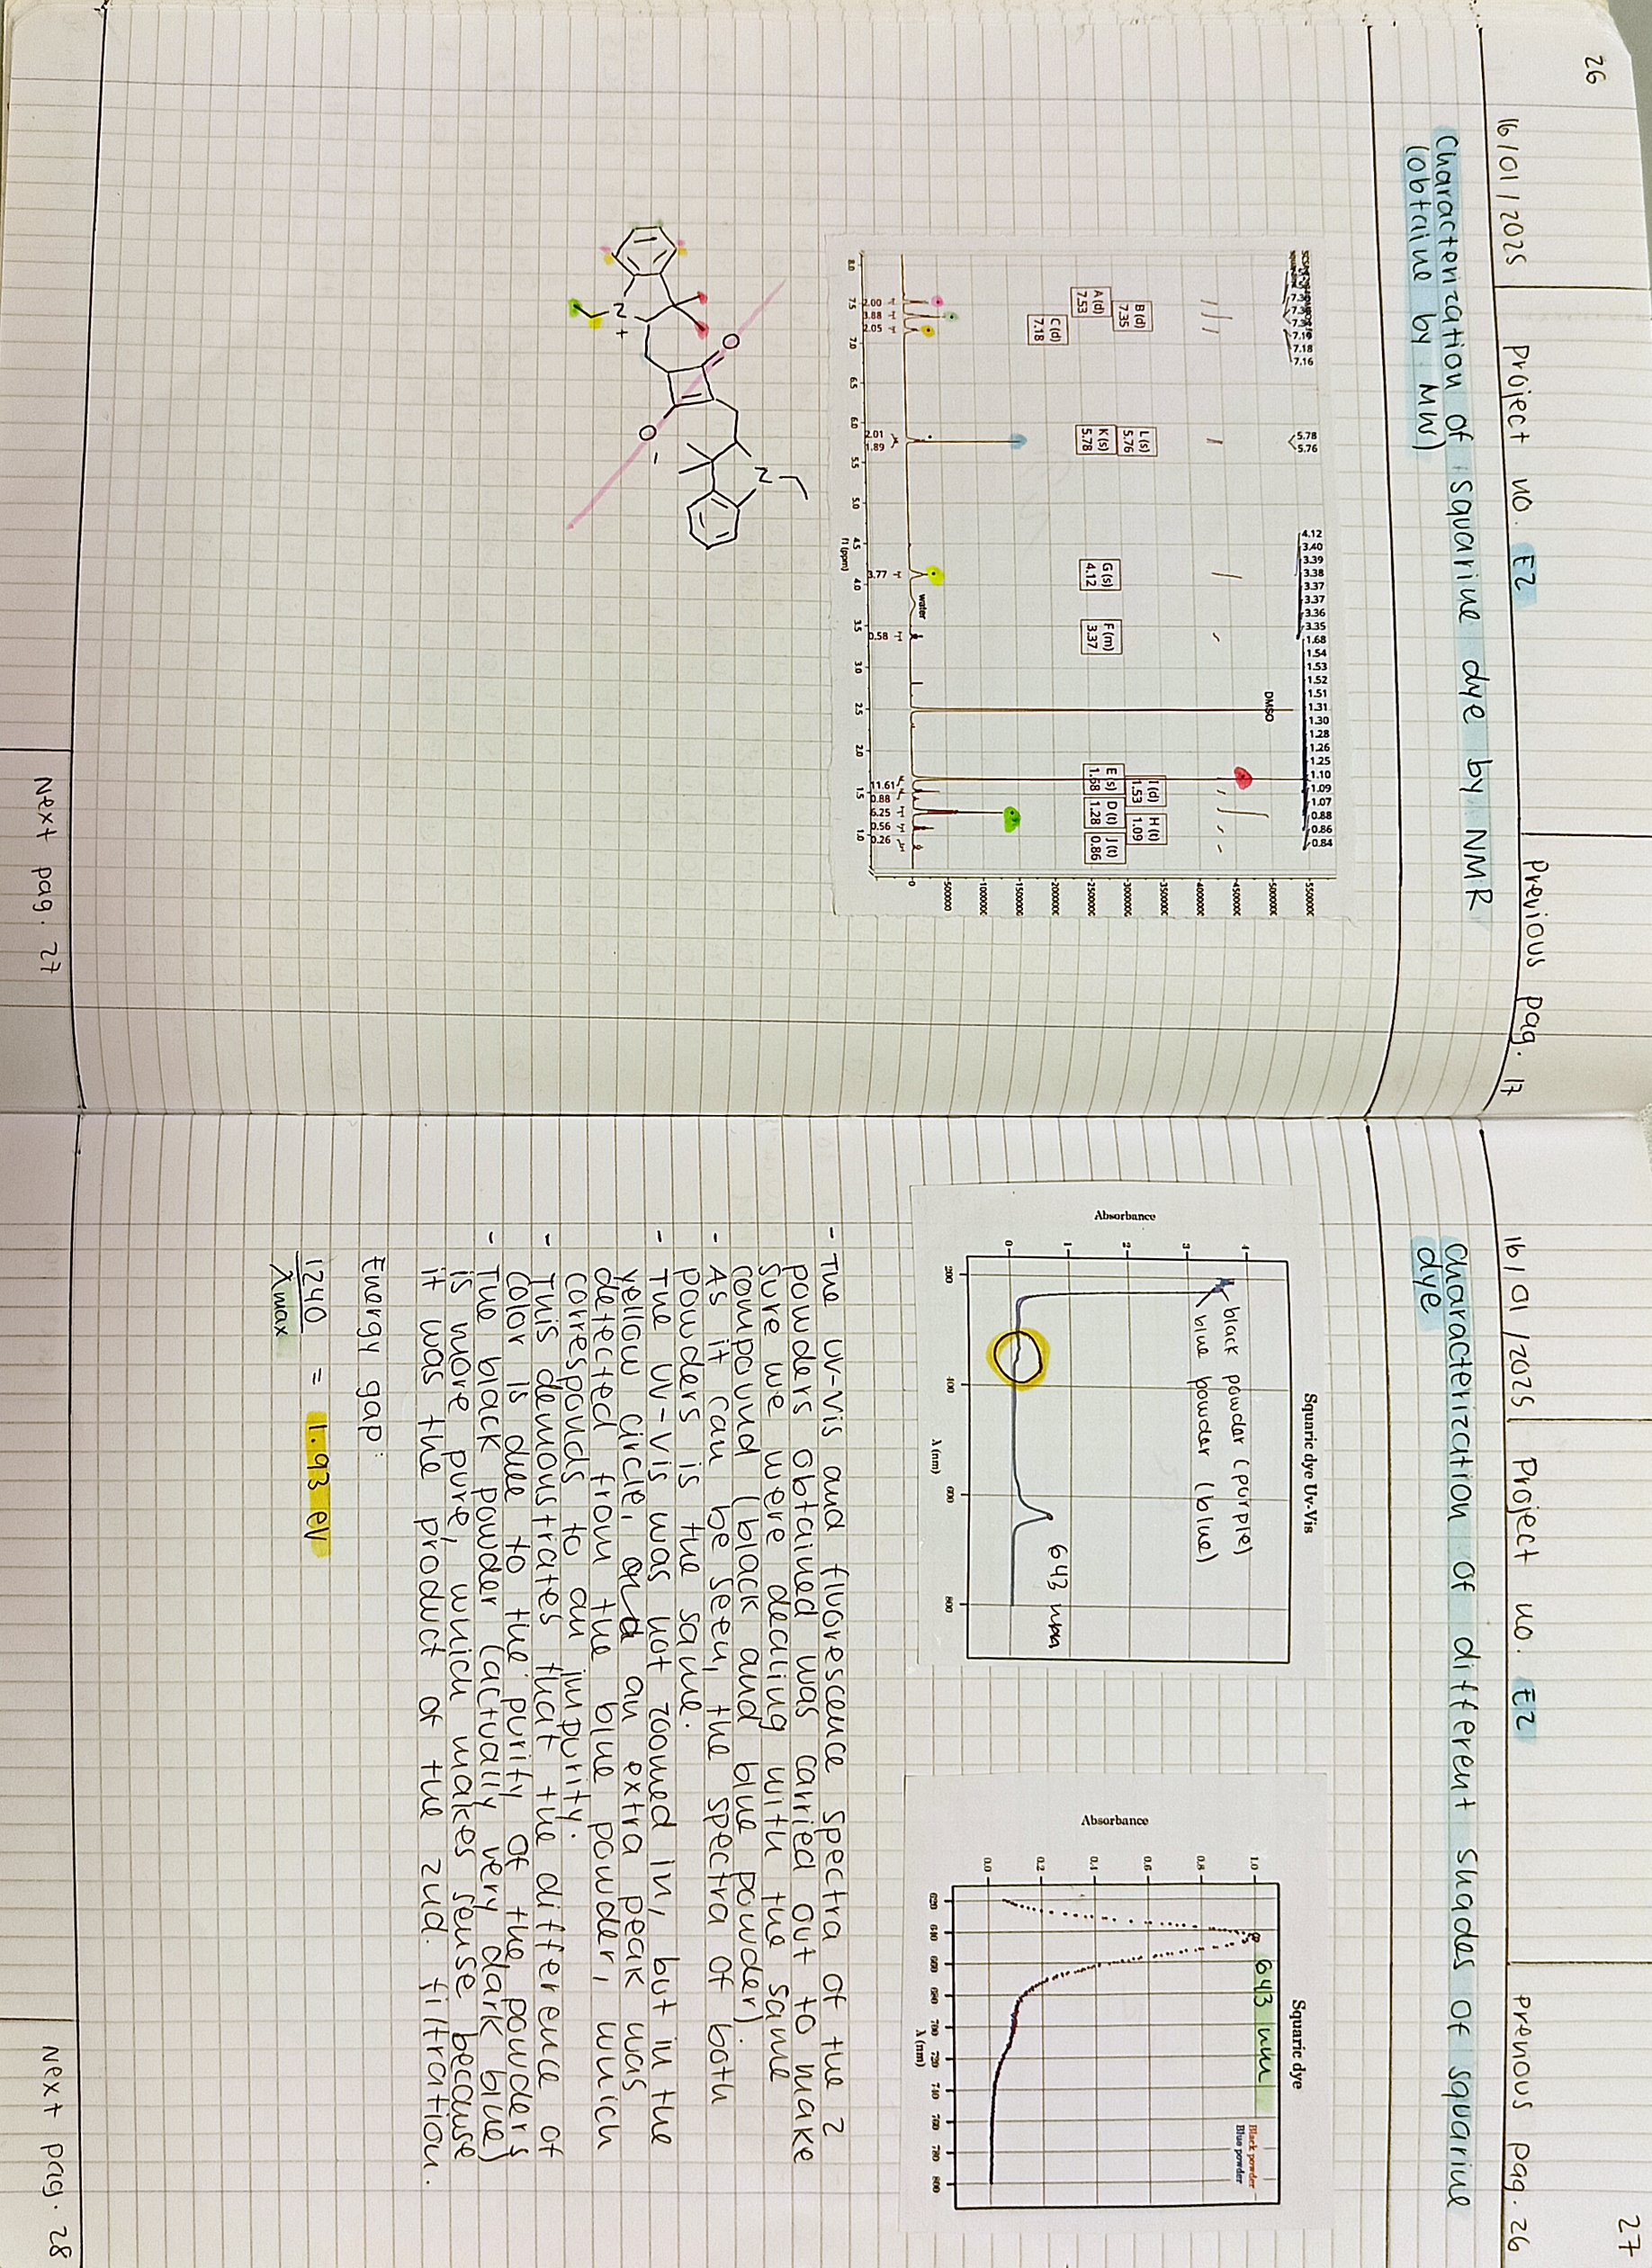 26
16/01/2025
Project no. E2
Previous pag. 17
Characterization of squarine dye by NMR
(obtaine by MW)
7.19
7.18
7.16
5.78
5.76
4.12
3.40
3.39
3.38
3.37
3.37
3.36
3.35
1.68
1.54
1.53
1.52
1.51
1.31
1.30
1.28
1.26
1.25
1.10
1.09
1.07
0.88
0.86
0.84
DMSO
B (d)
7.35
A (d)
7.53
C (d)
7.18
L (s)
5.76
K (s)
5.78
G (s)
4.12
F (m)
3.37
I (d)
1.53
H (t)
1.09
E (s)
1.68
D (t)
1.28
J (t)
0.86
water
2.00
3.88
2.05
2.01
1.89
3.77
0.58
11.61
0.88
6.25
0.56
0.26
8.0 7.5 7.0 6.5 6.0 5.5 5.0 4.5 4.0 3.5 3.0 2.5 2.0 1.5 1.0
f1 (ppm)
O
N
+
O
-
N
Next pag. 27
27
16/01/2025
Project no. E2
Previous pag. 26
Characterization of different shades of squarine
dye
Squaric dye Uv-Vis
black powder (purple)
blue powder (blue)
643 nm
Absorbance
4
3
2
1
0
200 400 600 800
λ (nm)
Squaric dye
643 nm
Black powder
Blue powder
Absorbance
1.0
0.8
0.6
0.4
0.2
0.0
620 640 660 680 700 720 740 760 780 800
λ (nm)
- The UV-Vis and fluorescence spectra of the 2
powders obtained was carried out to make
sure we were dealing with the same
compound (black and blue powder).
- As it can be seen, the spectra of both
powders is the same.
- The UV-Vis was not zoomed in, but in the
yellow circle, and an extra peak was
detected from the blue powder, which
corresponds to an impurity.
- This demonstrates that the difference of
color is due to the purity of the powders
- The black powder (actually very dark blue)
is more pure, which makes sense because
it was the product of the 2nd. filtration.
Energy gap:
1240
λmax
= 1.93 eV
Next pag. 28